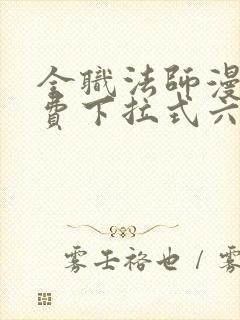 全職法師漫
費下拉式六
雾壬裕也 / 雾